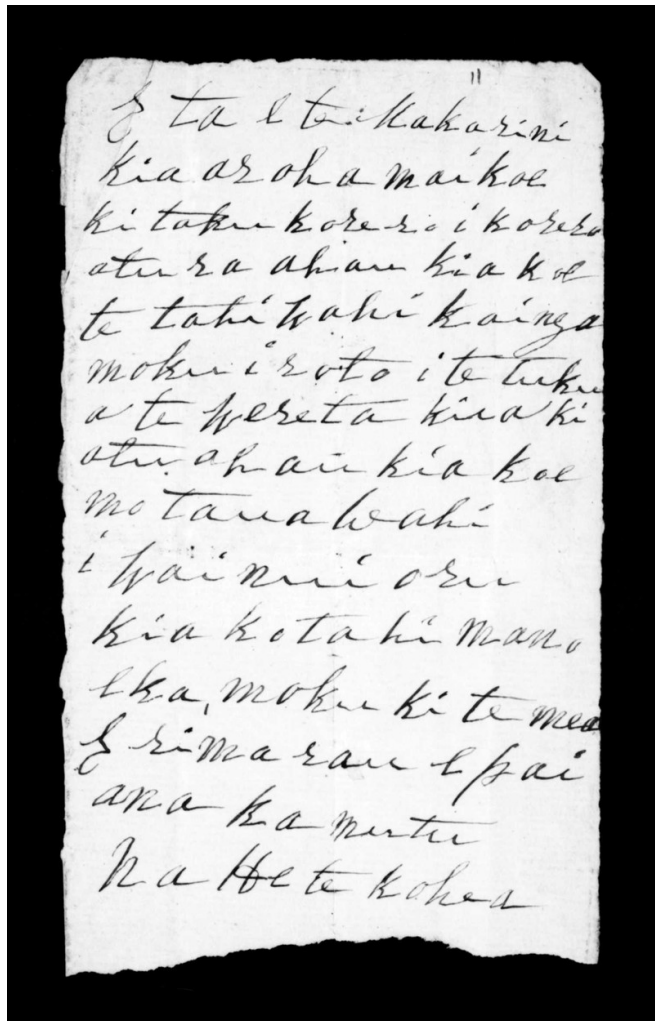 11
E ta e te Makarini
kia aroha mai koe
ki taku korero i korero
atu ra ahau kia koe
te tahi Wahi kainga
moku i roto i te tuku
a te Wereta kua ki
atu ahau kia koe
mo taua Wahi
i Wai nui oru
kia kotahi mano
eka, moku ki te mea
E rima rau e pai
ana ka mutu
Na He te kohea